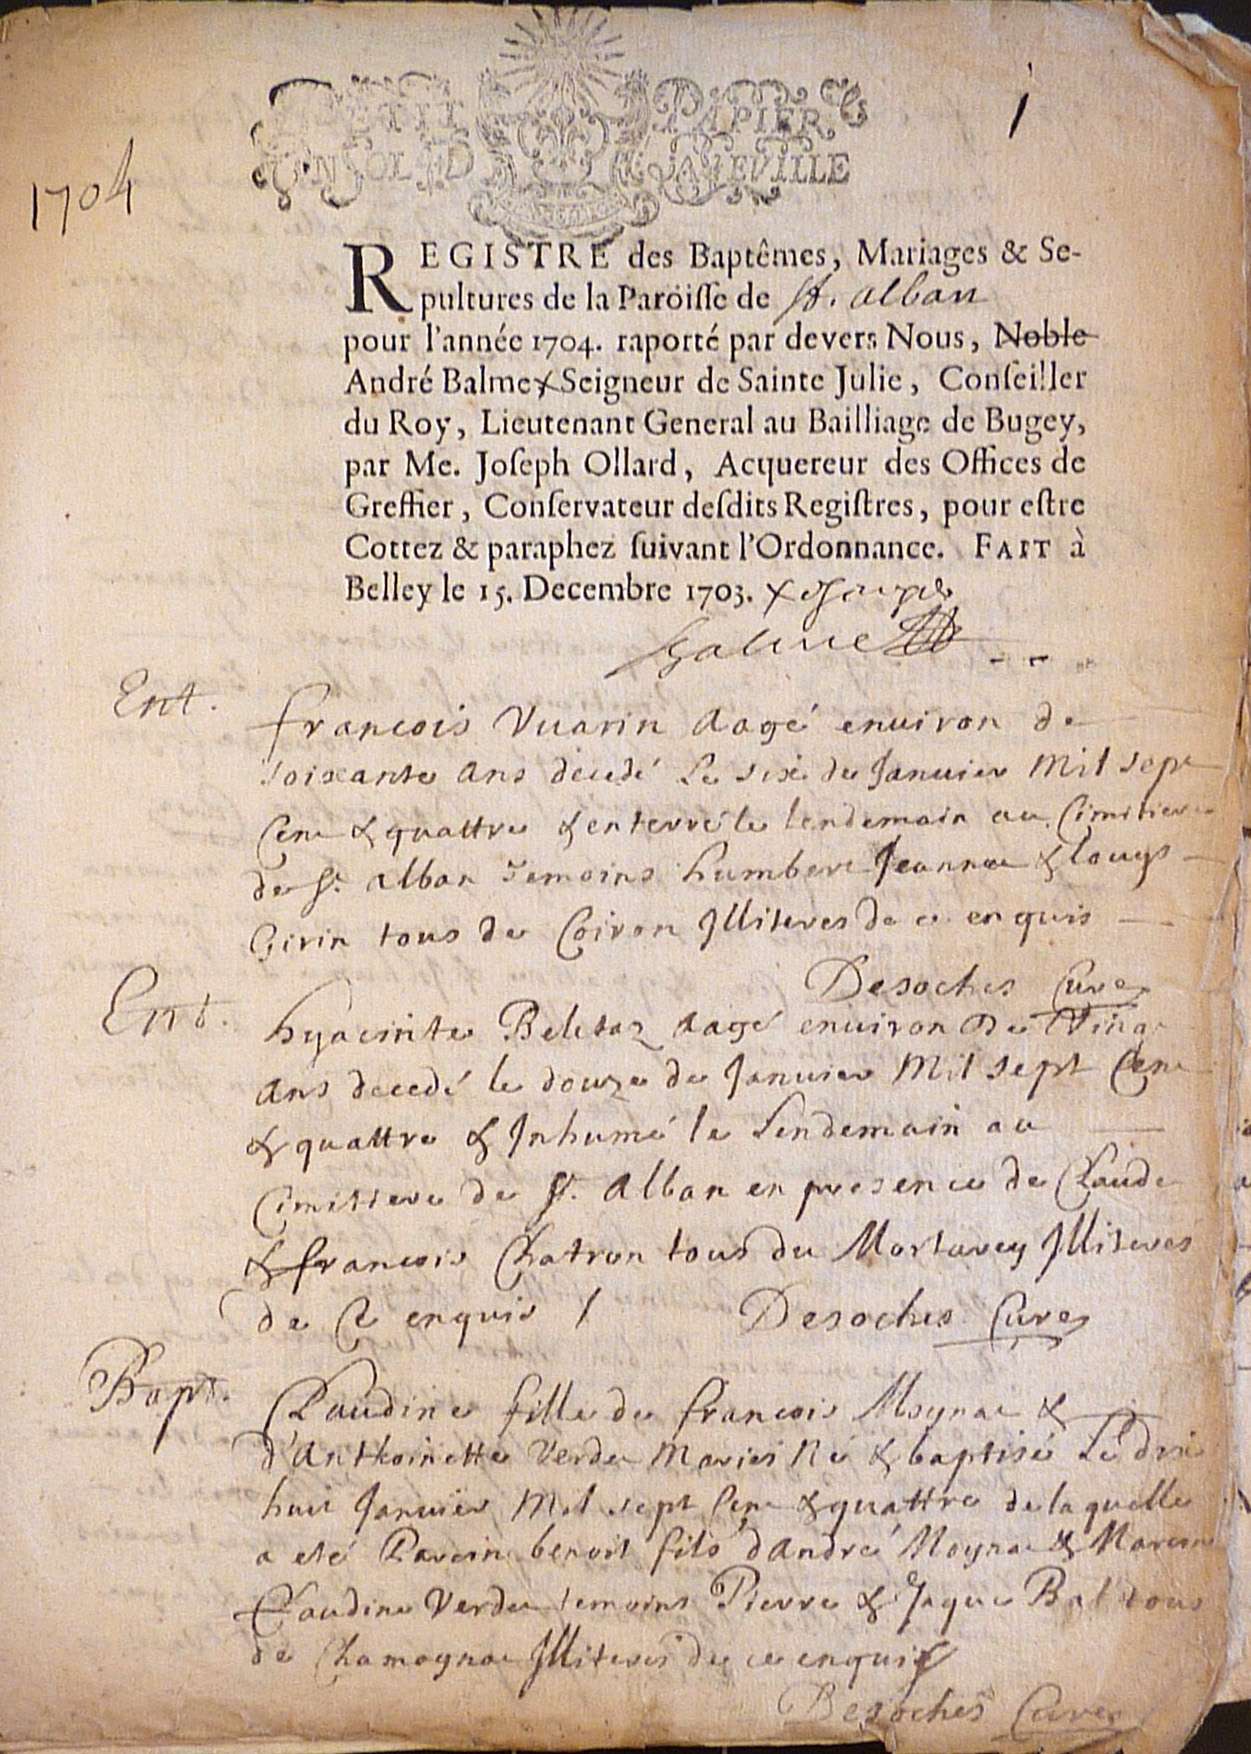 1704
1
PETIT PAPIER
UN SOL LAD QAREVILLE
REGISTRE des Baptêmes, Mariages & Se-
pultures de la Paroisse de St. alban
pour l'année 1704. raporté par devers Nous, Noble
André Balme x Seigneur de Sainte Julie, Conseiller
du Roy, Lieutenant General au Bailliage de Bugey,
par Me. Joseph Ollard, Acquereur des Offices de
Greffier, Conservateur desdits Registres, pour estre
Cottez & paraphez suivant l'Ordonnance. FAIT à
Belley le 15. Decembre 1703. x
Balme
Ent. francois Vuarin aagé enuiron de
soixante ans decedé le six de Januier Mil sept
Cent & quattre & enterré le lendemain au Cimitiere
de St. alban temoins humbert Jeannet & louys
Girin tous de Coiron Illiteres de ce enquis
Desoches Curé
Ent. hyacinte Beletaz aagé enuiron de Vingt
ans decedé le douze de Januier Mil sept Cent
& quattre & Inhumé le Lendemain au
Cimitiere de St. Alban en presence de Claude
& francois Chatron tous du Mortarey Illiteres
de Ce enquis / Desoches Curé
Bapt. Claudine fille de francois Moynat &
d'Anthoinette Verdet Mariés Né & baptisé Le dix
huit Januier Mil sept Cent & quattre de laquelle
a eté Parein benoit fils d'andré Moynat & Mareine
Claudine Verdet temoins Pierre & Jaque Bal tous
de Chamognat Illiteres de ce enquis
Desoches Curé